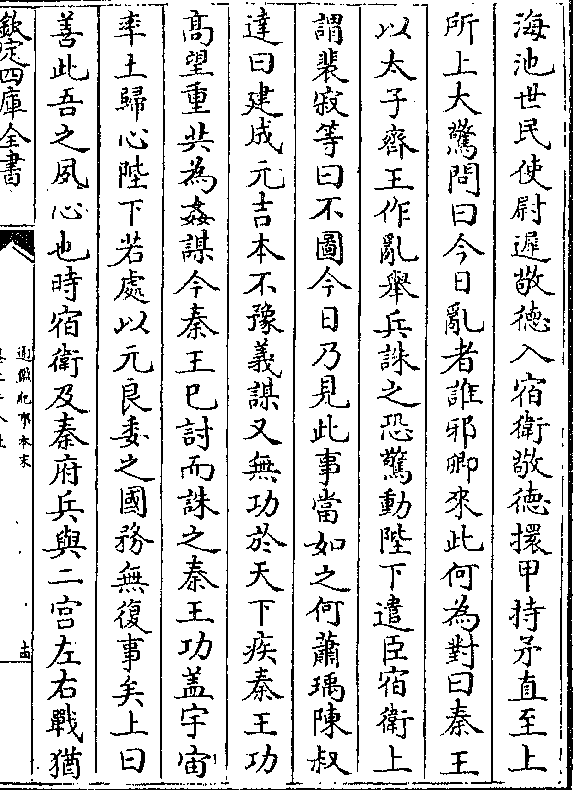 海池世民使尉遲敬德入宿衛敬德擐甲持矛直至上
所上大驚問曰今日亂者誰邪卿來此何為對曰秦王
以太子齊王作亂舉兵誅之恐驚動陛下遣臣宿衛上
謂裴寂等曰不圖今日乃見此事當如之何蕭瑀陳叔
達曰建成元吉本不豫義謀又無功於天下疾秦王功
髙望重共為姦謀今秦王已討而誅之秦王功盖宇宙
率土歸心陛下若處以元良委之國務無復事矣上曰
善此吾之夙心也時宿衛及秦府兵與二宫左右戰猶
欽定四庫全書
通鑑紀事本末